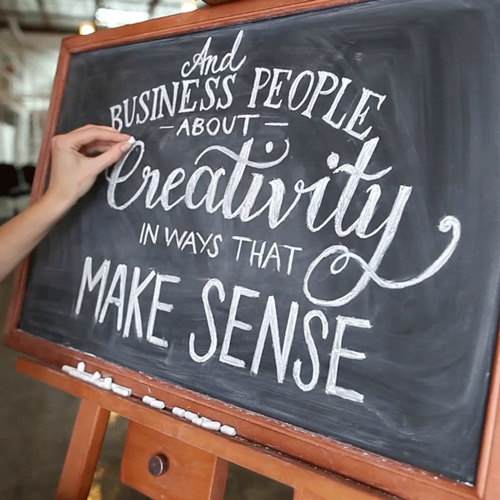 And
BUSINESS PEOPLE
—ABOUT—
Creativity
IN WAYS THAT
MAKE SENSE